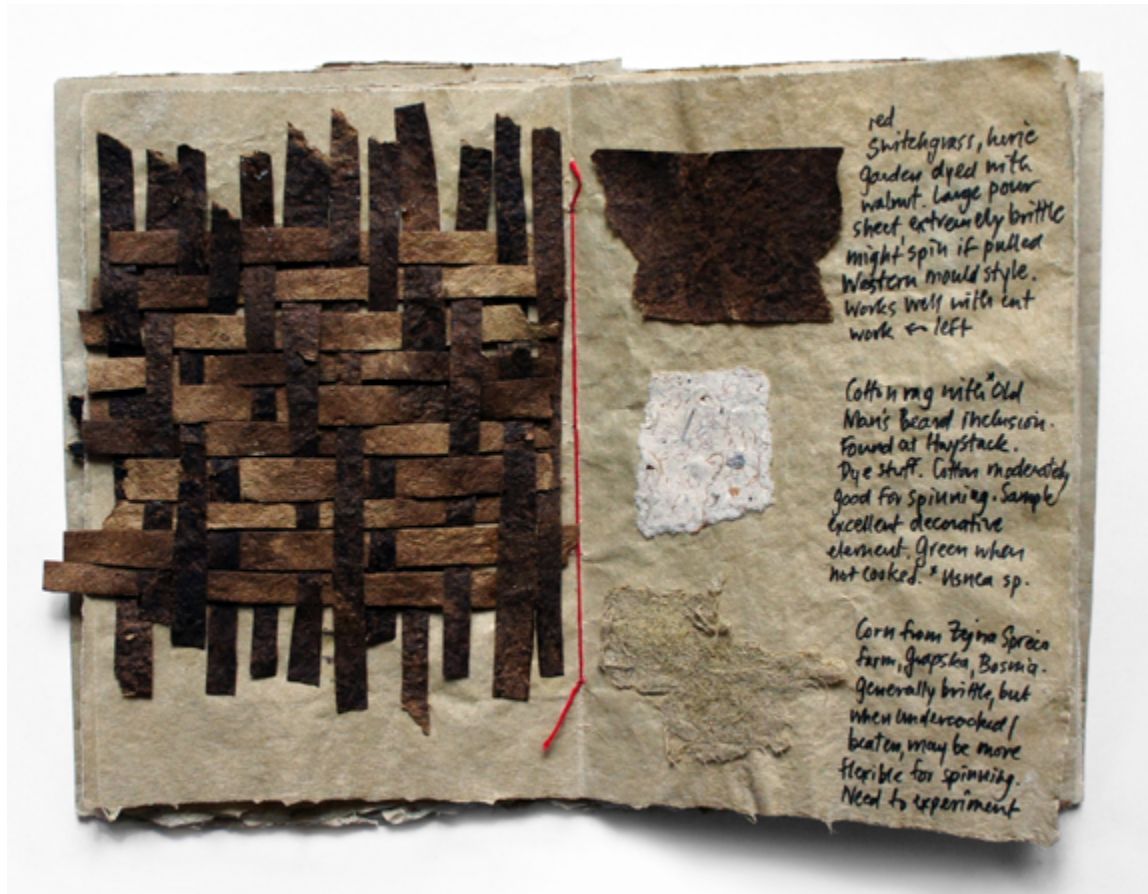 red
Switchgrass, hurie
garden dyed with
walnut. Large pour
sheet extremely brittle
might spin if pulled
Western mould style.
Works well with cut
work ← left
Cotton rag with *Old
Man's Beard inclusion.
Found at Haystack.
Dye stuff. Cotton moderately
good for spinning. Sample
excellent decorative
element. Green when
not cooked. * Usnea sp.
Corn from Zejna Spreco
farm, Grapska, Bosnia.
generally brittle, but
when undercooked/
beaten, may be more
flexible for spinning.
Need to experiment